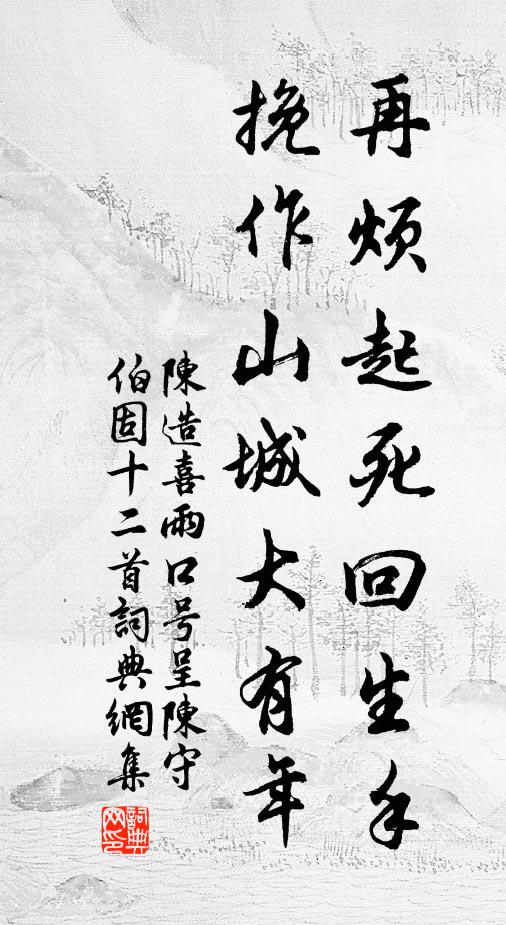 再烦起死回生手
挽作山城大有年
陳造喜雨口号呈陳守
伯固十二首詞典網集
詞典网印